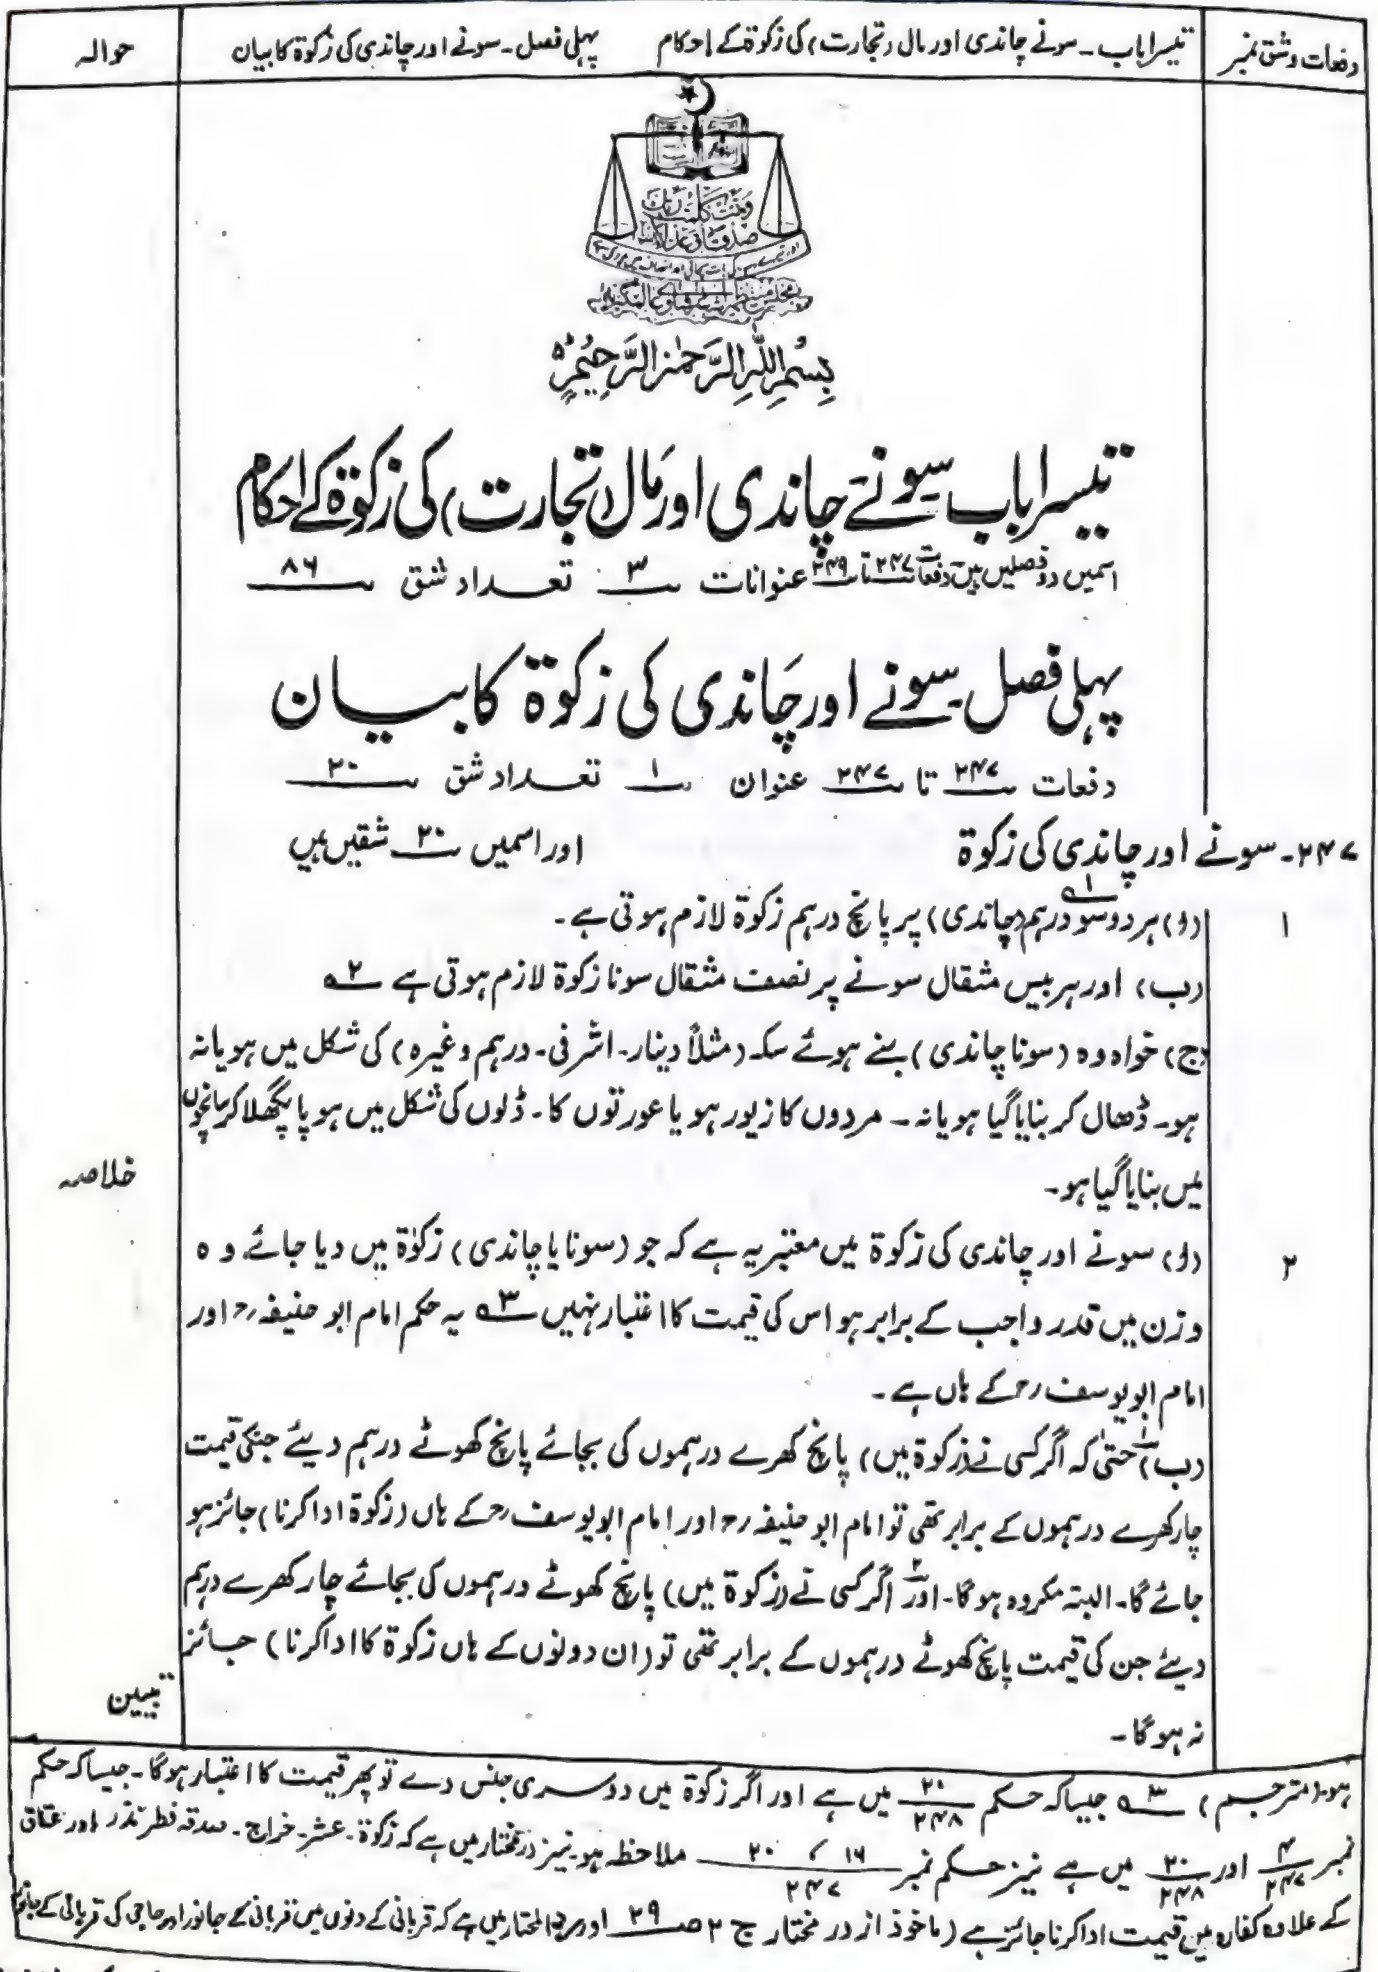 دفعات وشق نمبر
تیسرا باب ۔ سونے چاندی اور مال (تجارت) کی زکوٰۃ کے احکام
پہلی فصل ۔ سونے اور چاندی کی زکوٰۃ کا بیان
حوالہ
وتمت کلمت ربک
صدقا وعدلا
بسم اللہ الرحمٰن الرحیم
تیسرا باب سونے چاندی اور مال (تجارت) کی زکوٰۃ کے احکام
اسمیں دو فصلیں ہیں دفعات ۲۴۷ تا ۲۴۹ عنوانات ۳ تعداد شق ۸۶
پہلی فصل سونے اور چاندی کی زکوٰۃ کا بیان
دفعات ۲۴۷ تا ۲۴۷ عنوان ۱ تعداد شق ۲۰
۲۴۷۔ سونے اور چاندی کی زکوٰۃ اور اسمیں ۲۰ شقیں ہیں
۱ (ا) ہر دو سو درہم (چاندی) پر پانچ درہم زکوٰۃ لازم ہوتی ہے ۔
(ب) اور ہر بیس مثقال سونے پر نصف مثقال سونا زکوٰۃ لازم ہوتی ہے ۲ھ
(ج) خواہ وہ (سونا چاندی) بنے ہوئے سکہ (مثلاً دینار۔ اشرفی۔ درہم وغیرہ) کی شکل میں ہو یا نہ
ہو۔ ڈھال کر بنایا گیا ہو یا نہ ۔ مردوں کا زیور ہو یا عورتوں کا۔ ڈلوں کی شکل میں ہو یا پگھلا کر سانچوں
میں بنایا گیا ہو۔
خلاصہ
۲ (ا) سونے اور چاندی کی زکوٰۃ میں معتبر یہ ہے کہ جو (سونا یا چاندی) زکوٰۃ میں دیا جائے وہ
وزن میں قدر واجب کے برابر ہو اس کی قیمت کا اعتبار نہیں ۳ھ یہ حکم امام ابو حنیفہ رح اور
امام ابو یوسف رح کے ہاں ہے ۔
(ب) ۱ حتیٰ کہ اگر کسی نے (زکوٰۃ میں) پانچ کھرے درہموں کی بجائے پانچ کھوٹے درہم دیئے جنکی قیمت
چار کھرے درہموں کے برابر تھی تو امام ابو حنیفہ رح اور امام ابو یوسف رح کے ہاں (زکوٰۃ ادا کرنا) جائز ہو
جائے گا۔ البتہ مکروہ ہو گا۔ اور ۲ اگر کسی نے (زکوٰۃ میں) پانچ کھوٹے درہموں کی بجائے چار کھرے درہم
دیئے جن کی قیمت پانچ کھوٹے درہموں کے برابر تھی تو (ان دونوں کے ہاں زکوٰۃ کا ادا کرنا) جائز
نہ ہو گا ۔
تبیین
ہو۔ (مترجم) ۳ھ جیسا کہ حکم ۲۰/۲۴۸ میں ہے اور اگر زکوٰۃ میں دوسری جنس دے تو پھر قیمت کا اعتبار ہو گا ۔ جیسا کہ حکم
نمبر ۴/۲۴۷ اور ۲۰/۲۴۸ میں ہے نیز حکم نمبر ۱۶ ، ۲۰/۲۴۷ ملاحظہ ہو۔ نیز در مختار میں ہے کہ زکوٰۃ۔ عشر۔ خراج ۔ صدقہ فطر نذر اور عتاق
کے علاوہ کفارہ میں قیمت ادا کرنا جائز ہے (ماخوذ از در مختار ج ۲ ص ۲۹ اور رد المحتار میں ہے کہ قربانی کے دنوں میں قربانی کے جانور اور حاجی کی قربانی کے جانور